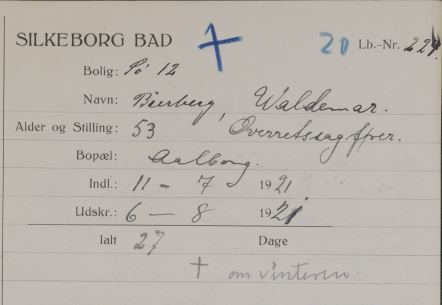 SILKEBORG BAD + 20 Lb.-Nr. 224
Bolig: Sø 12
Navn: Bierberg, Waldemar.
Alder og Stilling: 53 Overretssagfører.
Bopæl: Aalborg.
Indl.: 11 - 7 1921
Udskr.: 6 - 8 1921
Ialt 27 Dage
+ om vinteren.